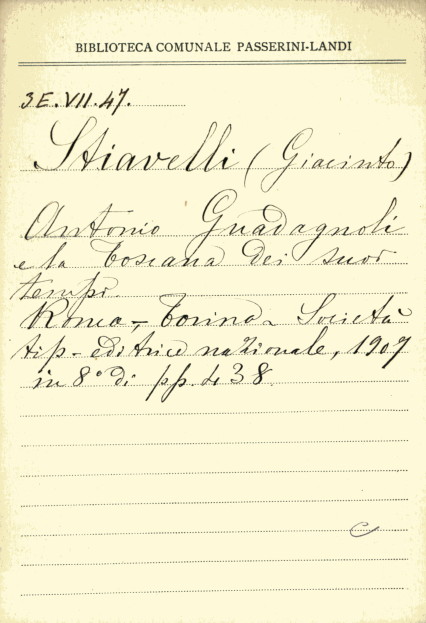 BIBLIOTECA COMUNALE PASSERINI-LANDI
3E.VII.47.
Stiavelli (Giacinto)
Antonio Guadagnoli
e la Toscana dei suoi
tempi.
Roma-Torino - Società
tip-editrice nazionale, 1907
in 8° di pp. 438.
C